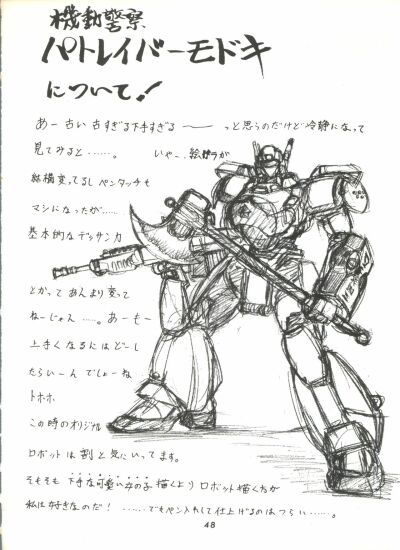 機動警察
パトレイバーモドキ
について!
あー古い古すぎる下手すぎる――っと思うのだけど冷静になって
見てみると……。 いやー、絵ガラが
結構変ってるしペンタッチも
マシになったが……
基本的なデッサン力
とかってあんまり変って
ねーじゃん……。あーもー
上手くなるにはどーし
たらいーんでしょーね
トホホ
この時のオリジナル
ロボットは割と気にいってます。
そもそも下手な可愛い女の子描くよりロボット描く方が
私は好きなのだ! ……でもペン入れして仕上げるのはつらい……。
48